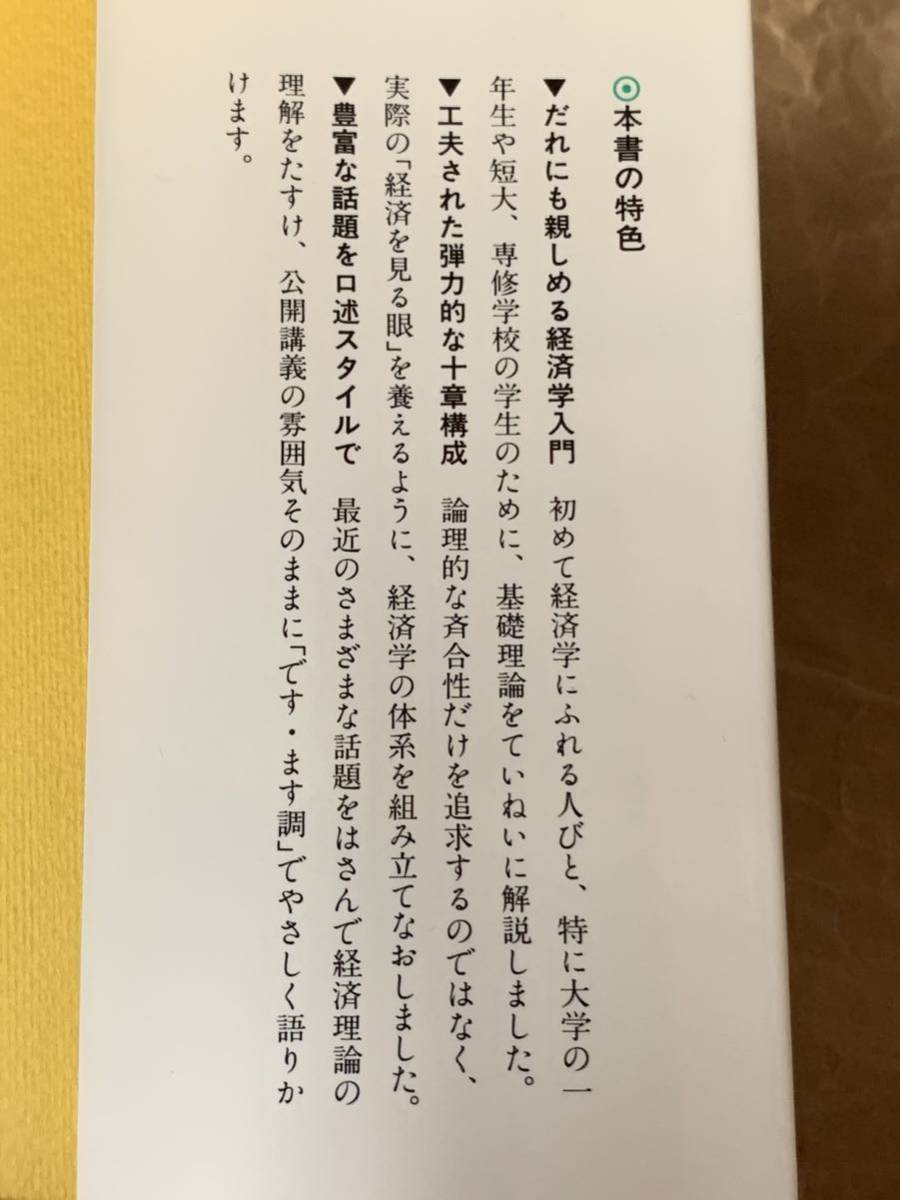 ◉本書の特色
▼だれにも親しめる経済学入門　初めて経済学にふれる人びと、特に大学の一
年生や短大、専修学校の学生のために、基礎理論をていねいに解説しました。
▼工夫された弾力的な十章構成　論理的な斉合性だけを追求するのではなく、
実際の「経済を見る眼」を養えるように、経済学の体系を組み立てなおしました。
▼豊富な話題を口述スタイルで　最近のさまざまな話題をはさんで経済理論の
理解をたすけ、公開講義の雰囲気そのままに「です・ます調」でやさしく語りか
けます。